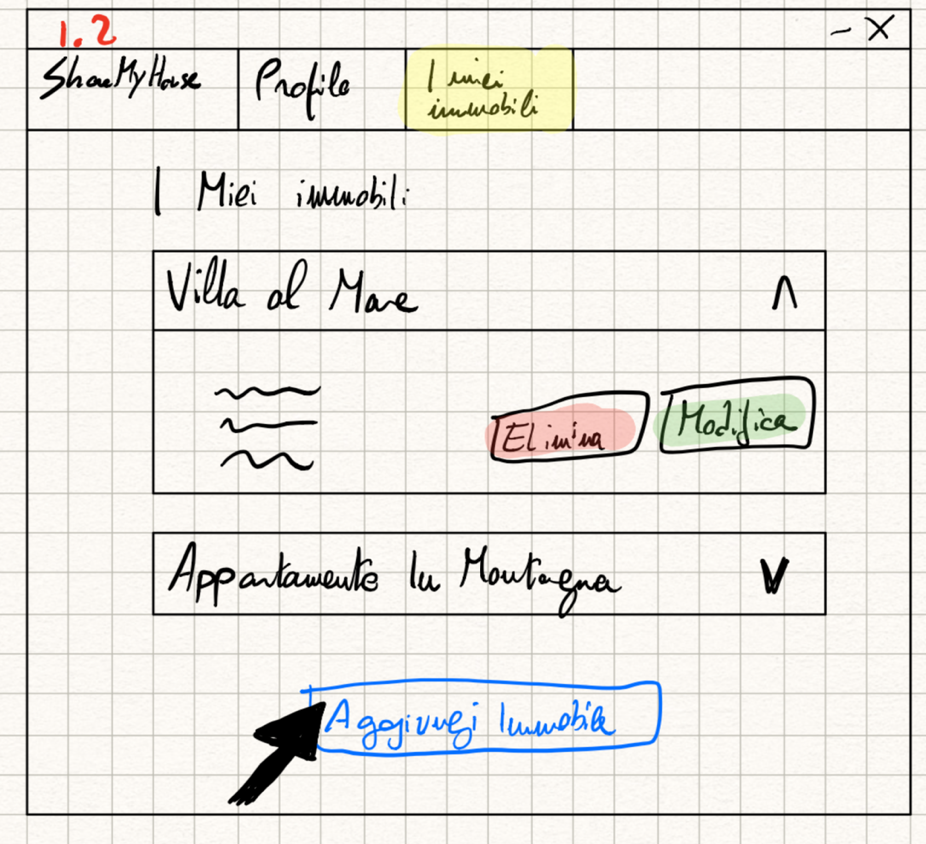 1.2
- X
ShareMyHouse
Profile
I miei
immobili
I Miei immobili
Villa al Mare
Elimina
Modifica
Appartamento In Montagna
Aggiungi Immobile